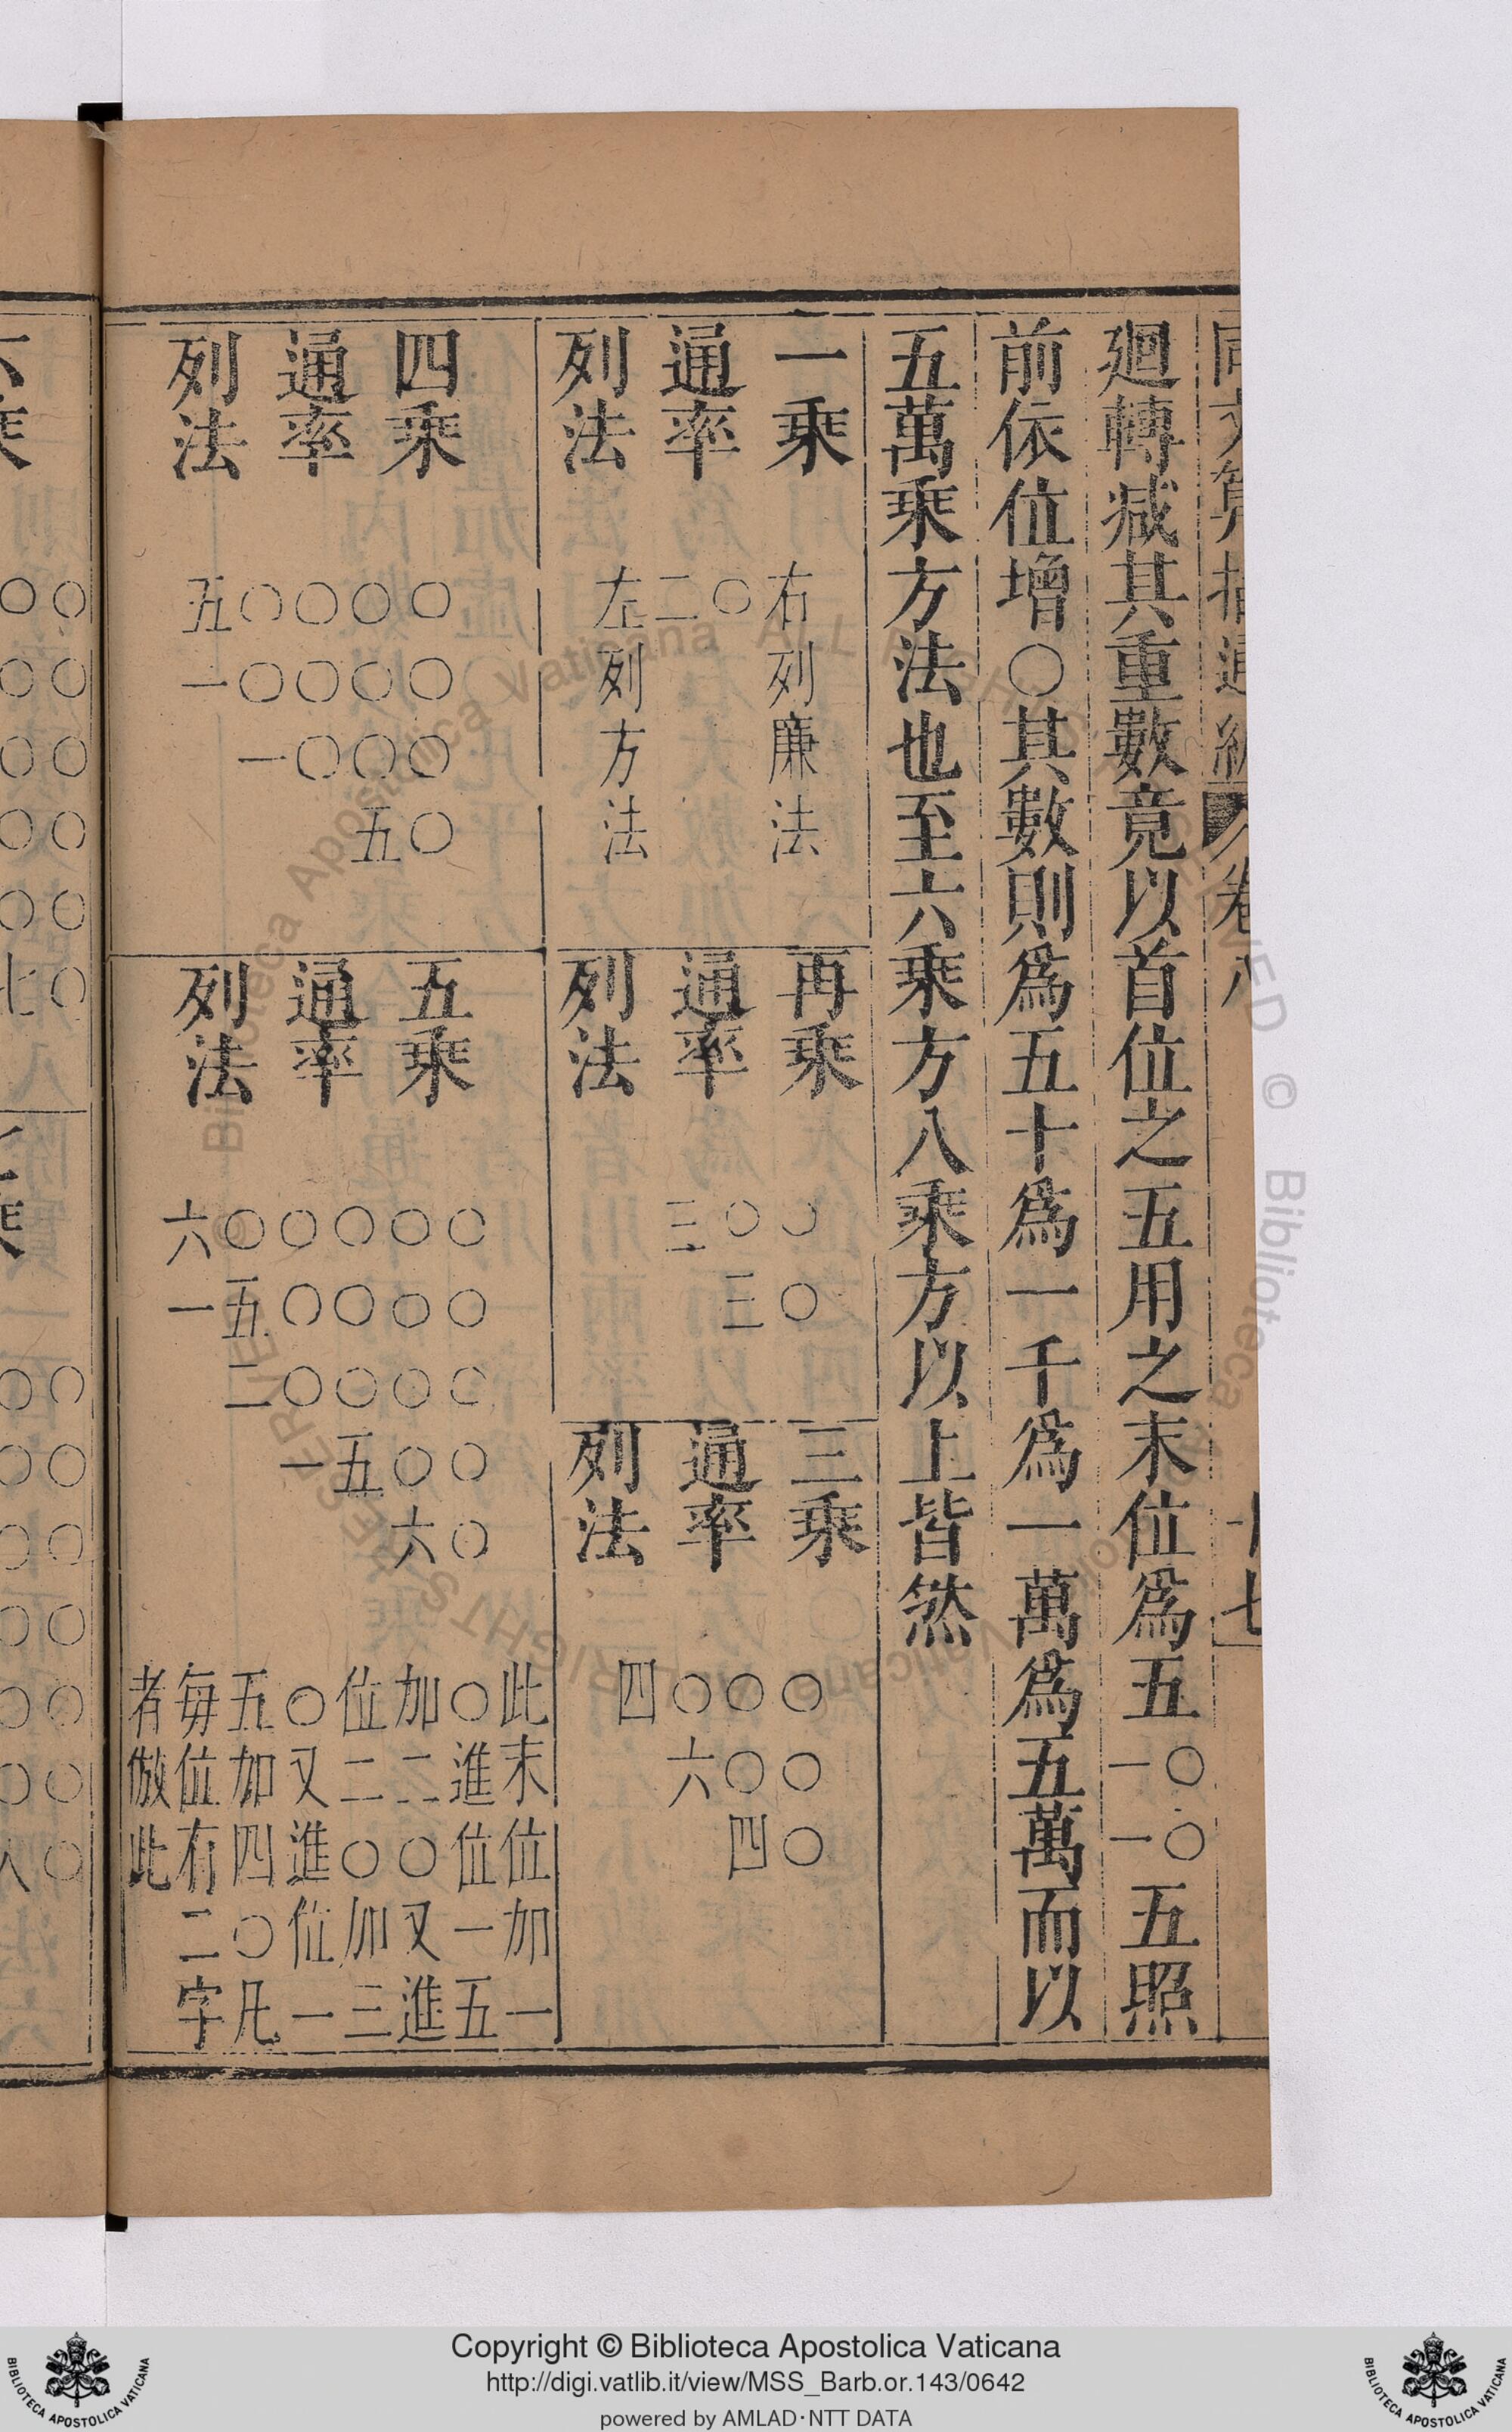 同文算指通編 卷八 十七
廻轉減其重數竟以首位之五用之末位爲五〇一〇一五照
前依位增〇其數則爲五十爲一千爲一萬爲五萬而以
五萬乘方法也至六乘方八乘方以上皆然
一乘
通率
列法
右列廉法
〇
二
左列方法
再乘
通率
列法
〇〇
〇三
三
三乘
通率
列法
〇〇〇
〇〇四
〇六
四
四乘
通率
列法
〇〇〇〇
〇〇〇五
〇〇〇
〇〇一
五一
五乘
通率
列法
〇〇〇〇〇
〇〇〇〇六
〇〇〇五
〇〇〇一
〇五二
六一
此末位加一
〇進位一五
加二〇又進
位二〇加三
〇又進位一
五加四〇凡
每位有二字
者倣此
Copyright © Biblioteca Apostolica Vaticana
http://digi.vatlib.it/view/MSS_Barb.or.143/0642
powered by AMLAD·NTT DATA